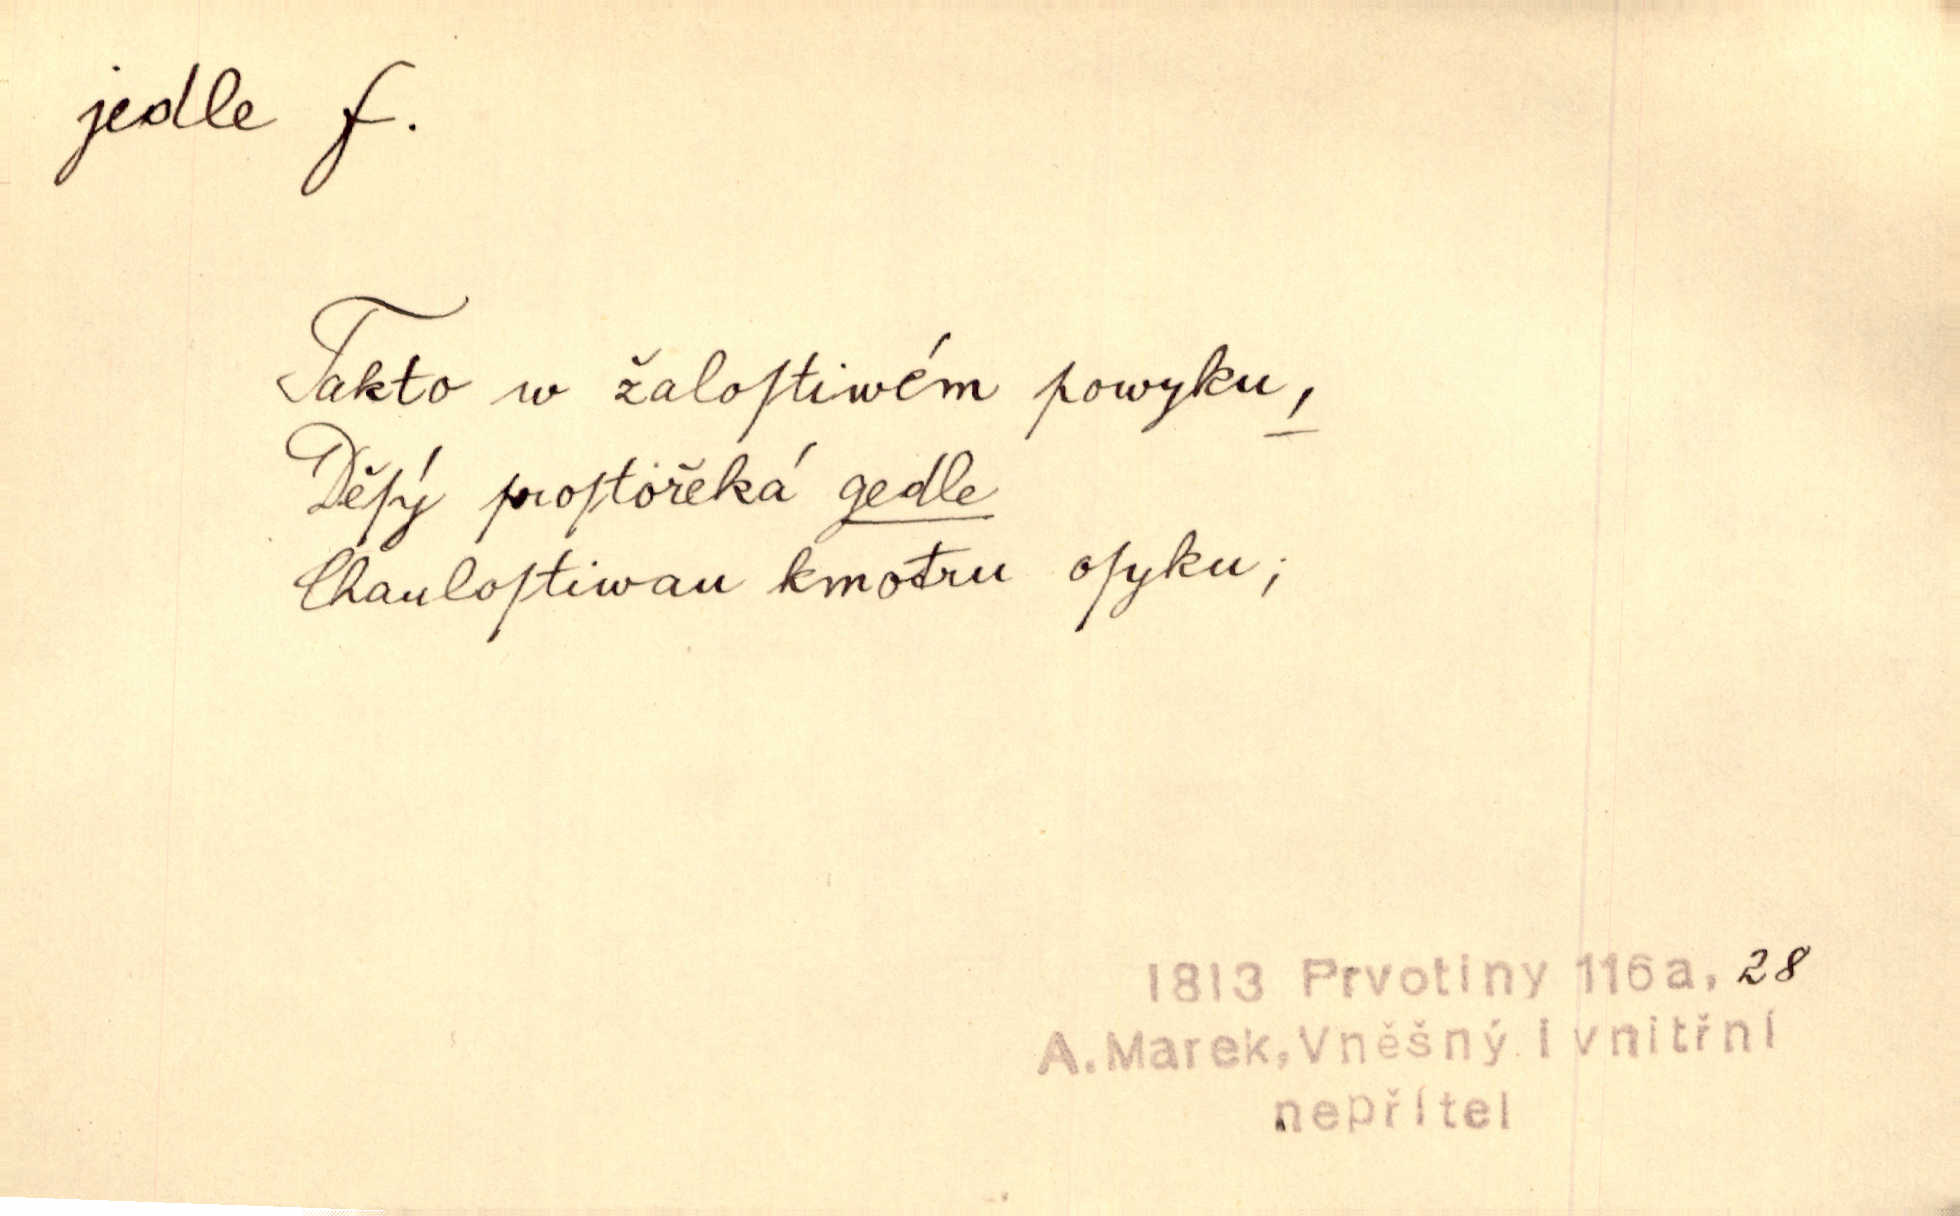 jedle f.
Takto w žaloſtiwém powyku,
Děſý proſtořeká gedle
Chauloſtiwau kmotru oſyku;
1813 Prvotiny 116a, 28
A. Marek, Vněšný i vnitřní
nepřítel